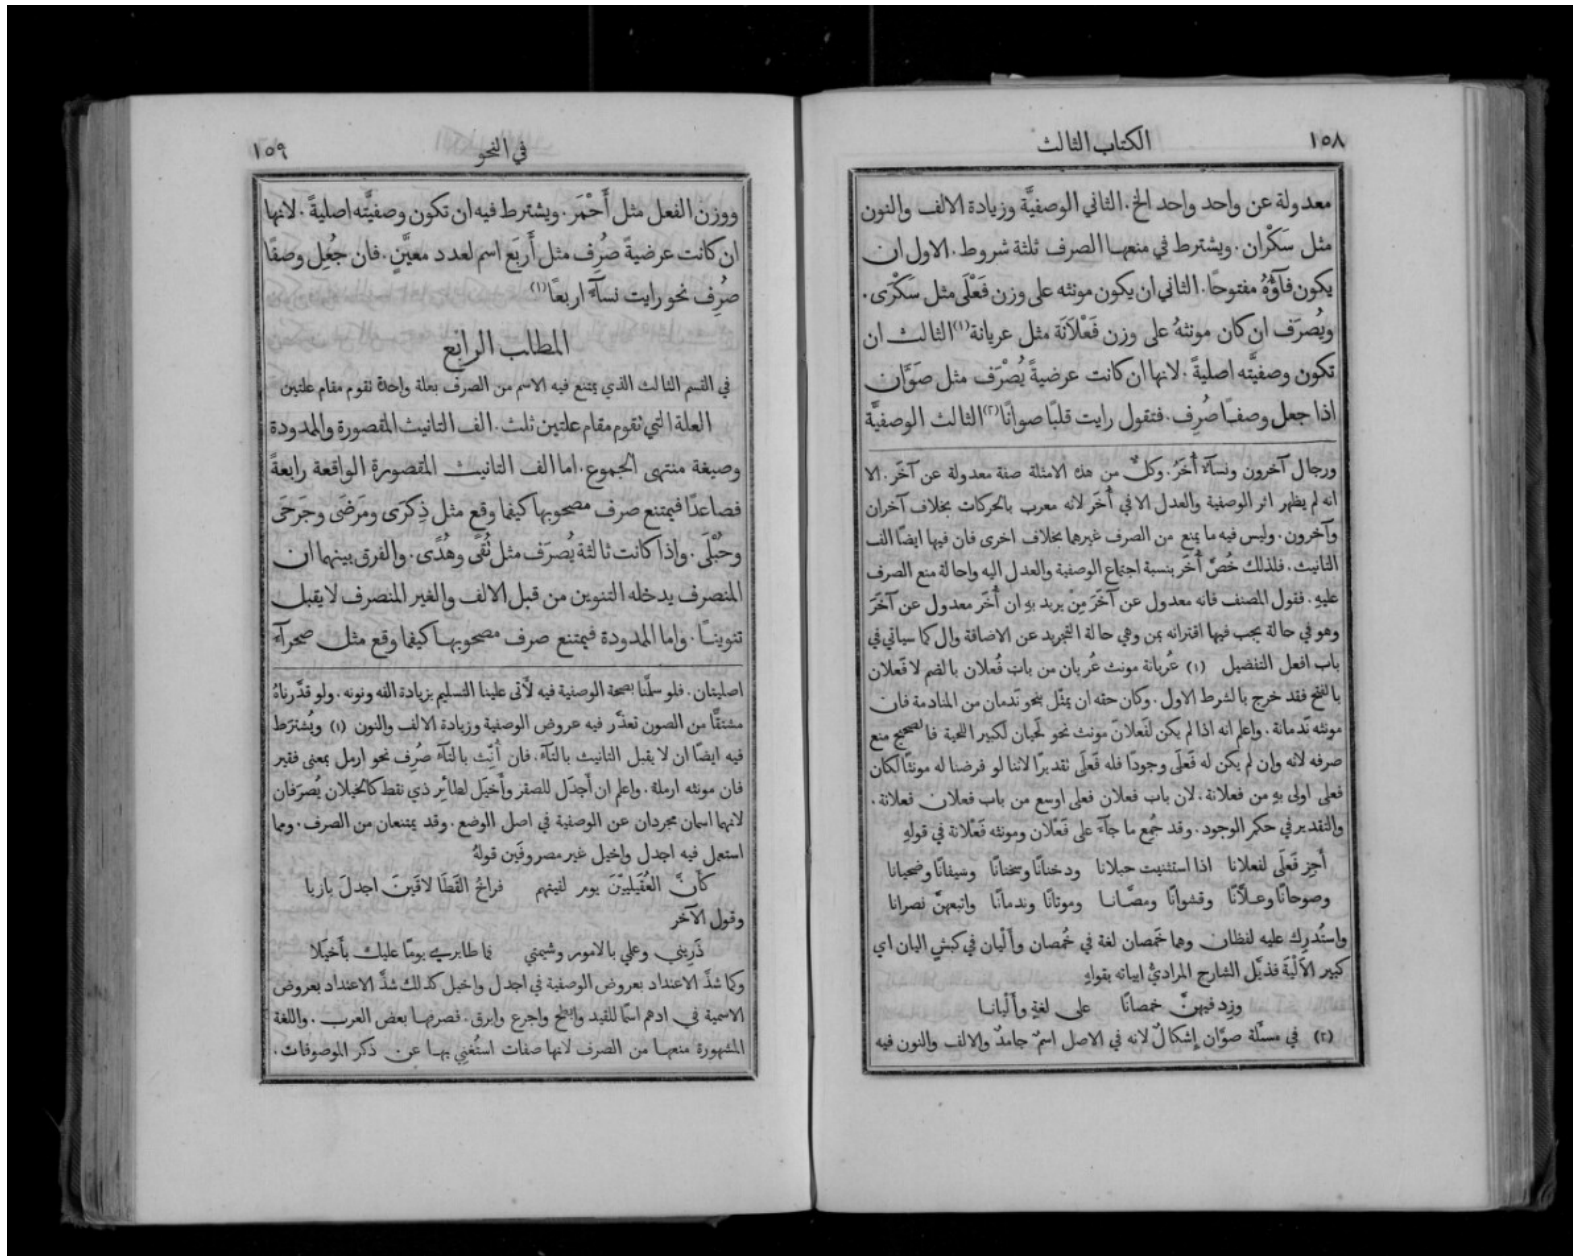 ١٥٨
الكتاب الثالث
معدولة عن واحد واحد الخ. الثاني الوصفيَّة وزيادة الالف والنون
مثل سَكْران. ويشترط في منعها الصرف ثلثة شروط. الاول ان
يكون فآؤُهُ مفتوحًا. الثاني ان يكون مونثه على وزن فَعْلَى مثل سَكْرَى.
ويُصرَف ان كان مونثهُ على وزن فَعْلَانَة مثل عريانة(١) الثالث ان
تكون وصفيَّته اصليةً. لانها ان كانت عرضيةً يُصْرَف مثل صَوَّان
اذا جعل وصفًا صُرِف. فتقول رايت قلبًا صوانًا(٢) الثالث الوصفيَّة
ورجال آخرون ونسآءٌ أُخَرُ. وكلٌّ من هذه الامثلة صفة معدولة عن آخَر. الا
انه لم يظهر اثر الوصفية والعدل الا في أُخَر لانه معرب بالحركات بخلاف آخران
وآخرون. وليس فيه ما يمنع من الصرف غيرهما بخلاف اخرى فان فيها ايضًا الف
التانيث. فلذلك خُصَّ أُخَر بنسبة اجتماع الوصفية والعدل اليه واحالة منع الصرف
عليهِ. فقول المصنف فانه معدول عن آخَرَ مِنْ يريد بهِ ان أُخَر معدول عن آخَرَ
وهو في حالة يجب فيها اقترانه بمن وهي حالة التجريد عن الاضافة وال كما سياتي في
باب افعل التفضيل (١) عُريانة مونث عُريان من باب فُعلان بالضم لا فَعلان
بالفتح فقد خرج بالشرط الاول. وكان حقه ان يمثّل بنحو نَدمان من المنادمة فان
مونثه نَدمانة. واعلم انه اذا لم يكن لفَعلانَ مونث نحو لَحيان لكبير اللحية فالصحيح منع
صرفه لانه وان لم يكن له فَعلَى وجودًا فله فَعلَى تقديرًا لاننا لو فرضنا له مونثًا لكان
فعلى اولى بهِ من فعلانة. لان باب فعلان فعلى اوسع من باب فعلان فعلانة.
والتقدير في حكم الوجود. وقد جُمع ما جآءَ على فَعْلان ومونثه فَعْلانة في قولهِ
أَجِز فَعلَى لفعلانا اذا استثنيت حبلانا ودخنانًا وسخنانًا وسيفانًا وضحيانا
وصوجانًا وعلّانًا وقشوانًا ومصَّانا وموتانًا وندمانًا واتبعهنَّ نصرانا
واستُدرِك عليه لفظان وهما خَمصان لغة في خُمصان وأَلْيان في كبش اليان اي
كبير الأَليَة فذيَّل الشارح المراديُّ ابياته بقولهِ
وزِد فيهنَّ خمصانًا على لغةٍ وأَلْيانا
(٢) في مسئلة صوَّان إِشكالٌ لانه في الاصل اسمٌ جامدٌ والالف والنون فيه
في النحو
١٥٩
ووزن الفعل مثل أَحْمَر. ويشترط فيه ان تكون وصفيَّته اصليةً. لانها
ان كانت عرضيةً صُرِف مثل أَربَع اسم لعدد معيَّنٍ. فان جُعِل وصفًا
صُرِف نحو رايت نسآءً اربعًا(١)
المطلب الرابع
في القسم الثالث الذي يمتنع فيه الاسم من الصرف بعلة واحدة تقوم مقام علتين
العلة التي تقوم مقام علتين ثلث. الف التانيث المقصورة والممدودة
وصيغة منتهى الجموع. اما الف التانيث المقصورة الواقعة رابعةً
فصاعدًا فيمتنع صرف مصحوبها كيفما وقع مثل ذِكرَى ومَرضَى وجَرحَى
وحُبْلَى. واذا كانت ثالثة يُصرَف مثل تُقًى وهُدًى. والفرق بينهما ان
المنصرف يدخله التنوين من قبل الالف والغير المنصرف لا يقبل
تنوينًا. واما الممدودة فيمتنع صرف مصحوبها كيفما وقع مثل صحرآء
اصليتان. فلو سلَّمنا بصحة الوصفية فيه لأَتى علينا التسليم بزيادة الفه ونونه. ولو قدَّرناهُ
مشتقًّا من الصون تعذَّر فيه عروض الوصفية وزيادة الالف والنون (١) ويُشترَط
فيه ايضًا ان لا يقبل التانيث بالتآء. فان أُنِّث بالتآء صُرِف نحو ارمل بمعنى فقير
فان مونثه ارملة. واعلم ان أَجدَل للصقر وأَخيَل لطائِر ذي نقط كالخيلان يُصرَفان
لانهما اسمان مجردان عن الوصفية في اصل الوضع. وقد يمتنعان من الصرف. ومما
استعمل فيه اجدل واخيل غير مصروفَين قولهُ
كأَنَّ العُقَيليّينَ يوم لقيتهم فراخُ القَطَا لاقَينَ اجدلَ بازيا
وقول الآخر
ذَرِيني وعلمي بالامور وشيمتي فما طايري يومًا عليك بأَخيَلا
وكما شذَّ الاعتداد بعروض الوصفية في اجدل واخيل كذلك شذَّ الاعتداد بعروض
الاسمية في ادهم اسمًا للقيد وابطح واجرع وابرق. فصرفها بعض العرب. واللغة
المشهورة منعها من الصرف لانها صفات استُغنِي بها عن ذكر الموصوفات.